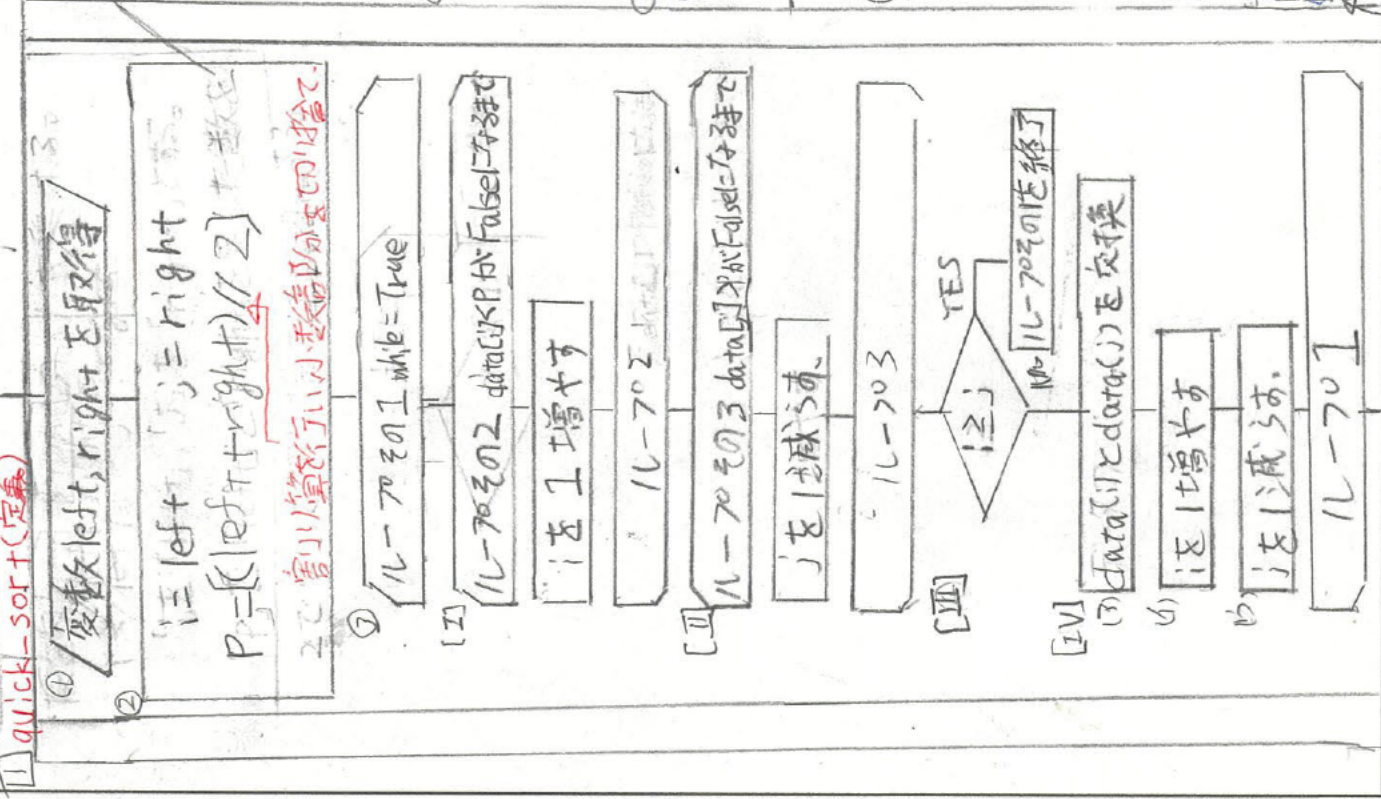 1 quick_sort(定義)
① 変数left, rightを取得
②
i=left j=right
P=[(left+right)//2]
割り算を行い小数部分を切り捨て
③ ループその1 while=True
[I] ループその2 data[i]<PがFalseになるまで
iを1増やす
ループ2
[II] ループその3 data[j]>PがFalseになるまで
jを1減らす、
ループ3
[III] i≥j YES
ループその1を終了
No
[IV]
(3) data(i)とdata(j)を交換
(4) iを1増やす
(5) jを1減らす。
ループ1